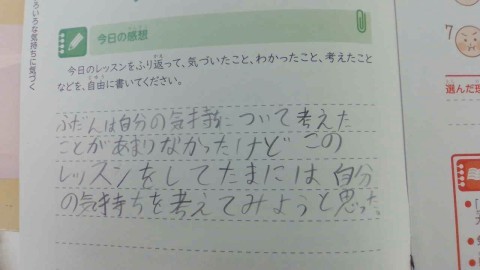 ろいろな気持ちに気づく
今日の感想
今日のレッスンをふり返って、気づいたこと、わかったこと、考えたこと
などを、自由に書いてください。
ふだんは自分の気持について考えた
ことがあまりなかったけど この
レッスンをしてたまには 自分
の気持ちを考えてみようと思った。
7
選んだ理